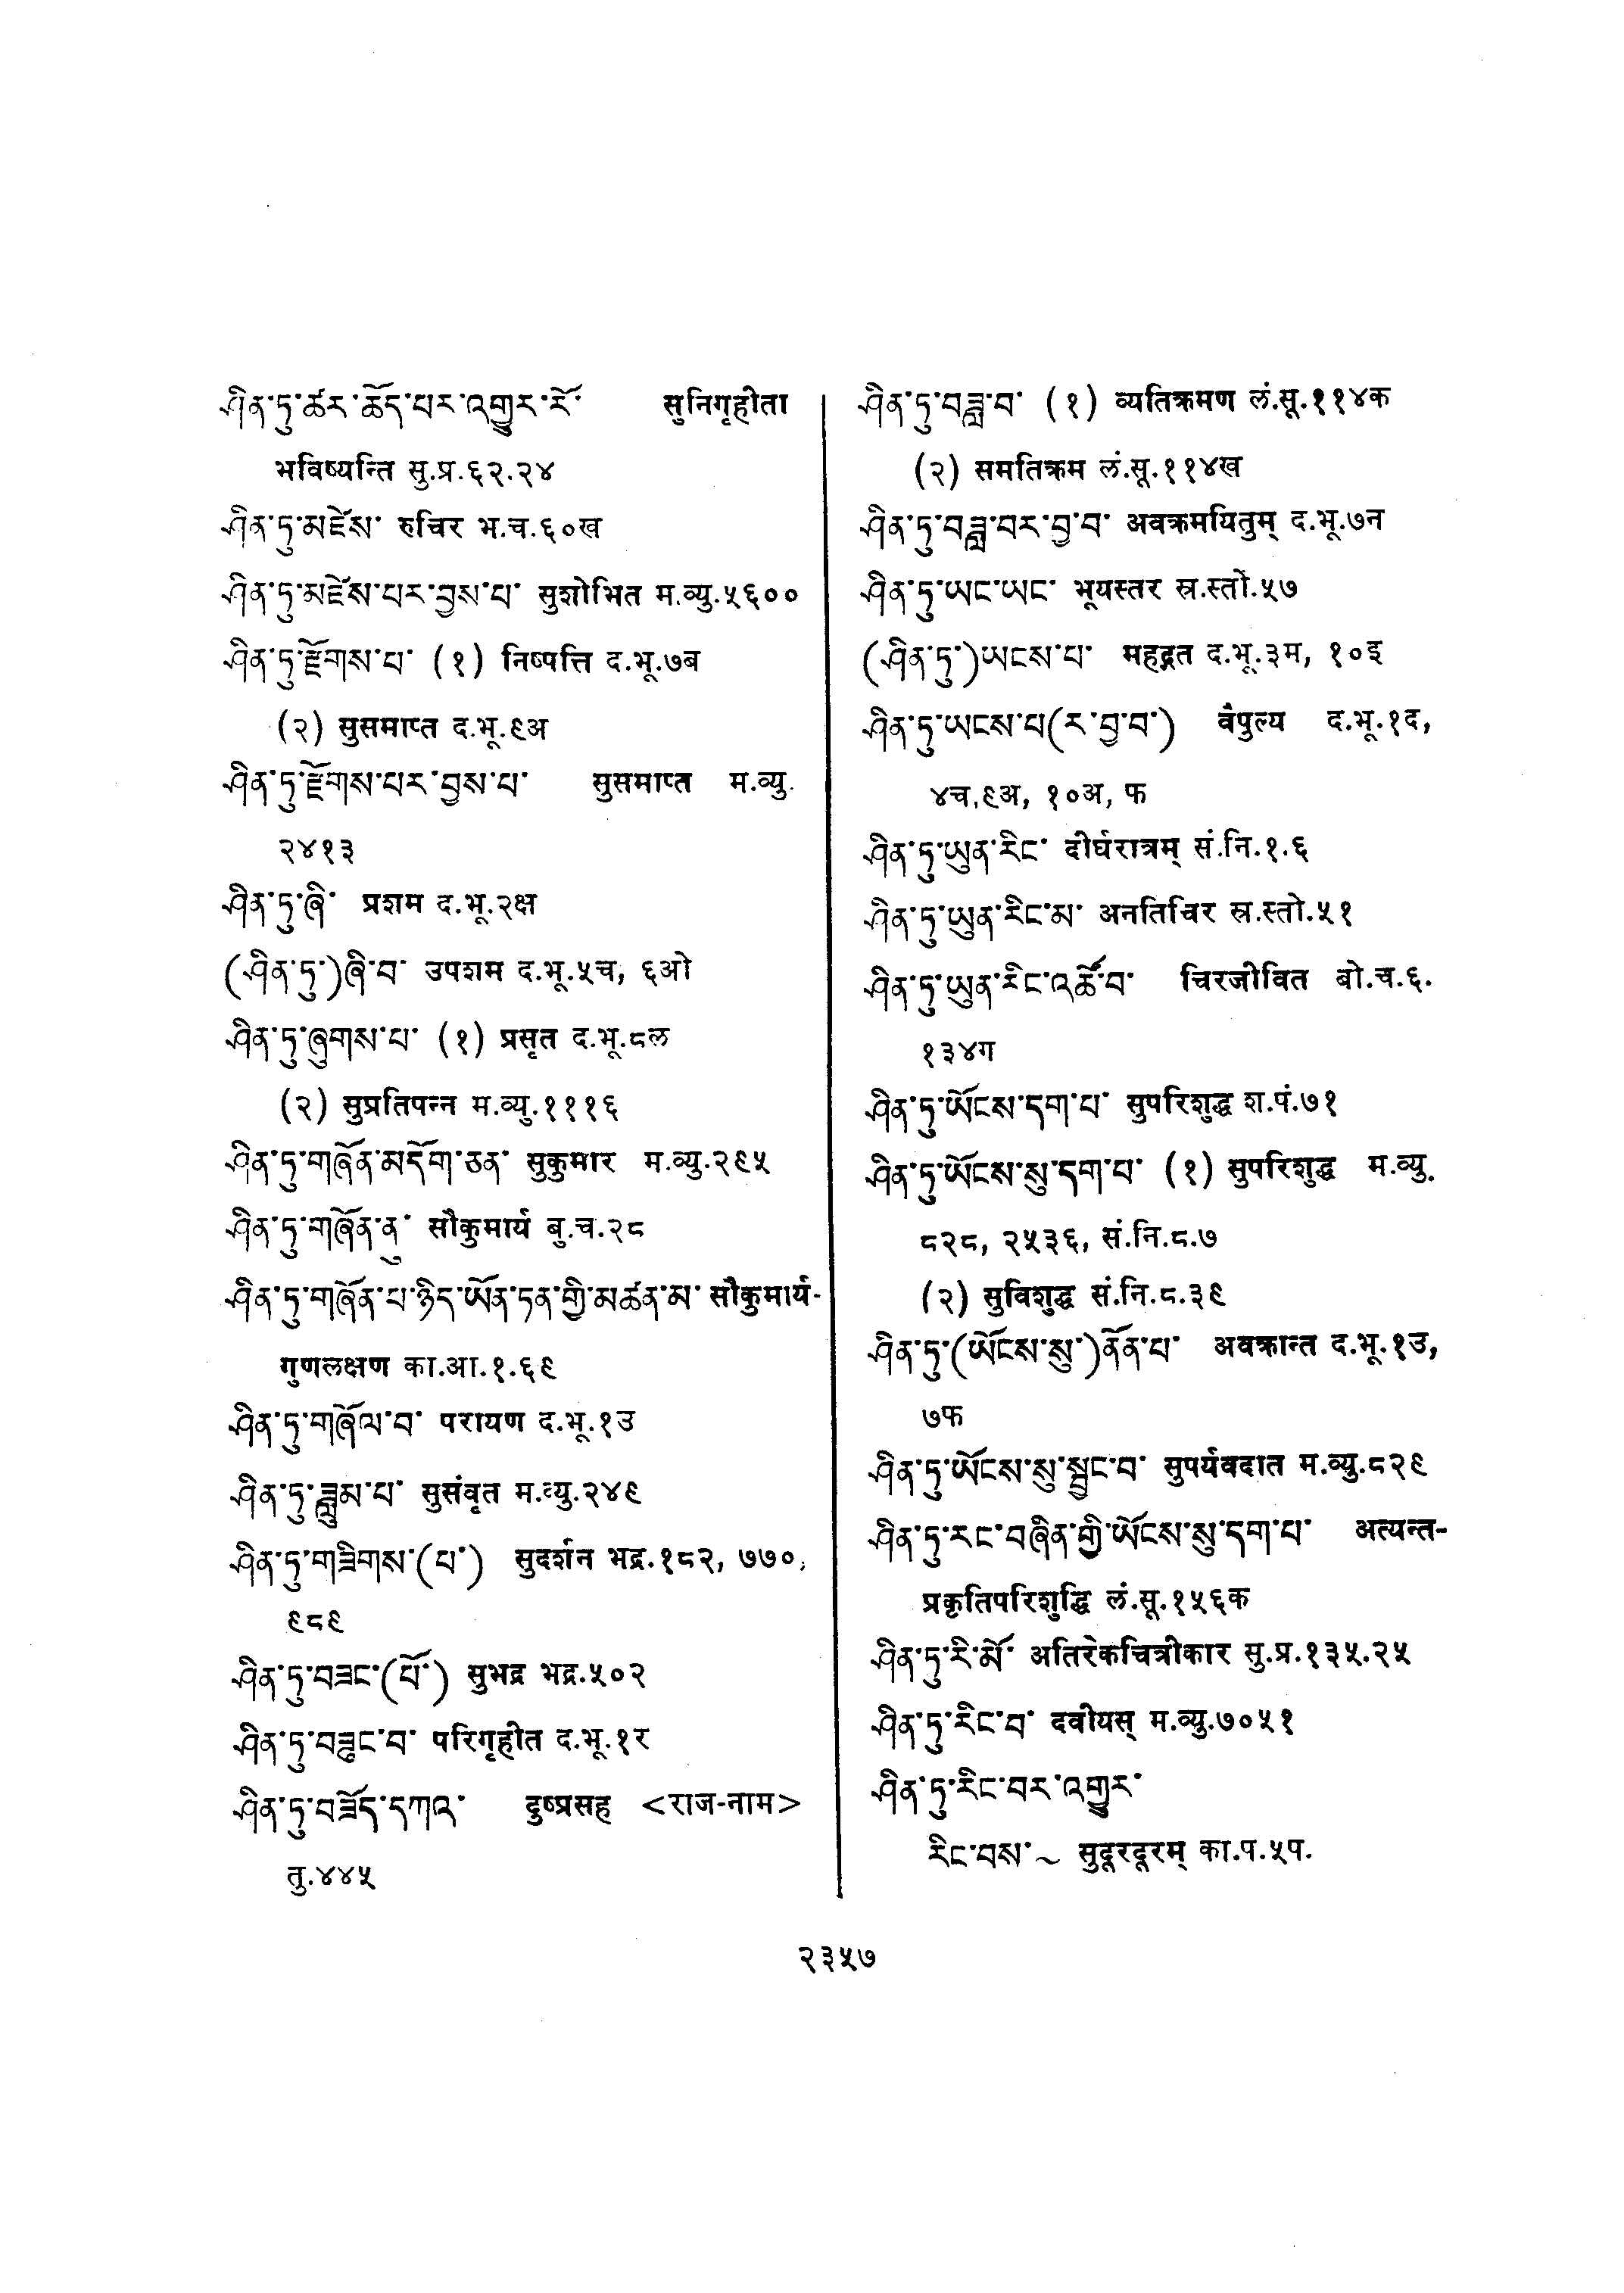 ཤིན་ཏུ་ཚར་ཆོད་པར་འགྱུར་རོ་ सुनिगृहीता
भविष्यन्ति सु.प्र.६२.२४
ཤིན་ཏུ་མཛེས་ रुचिर भ.च.६०ख
ཤིན་ཏུ་མཛེས་པར་བྱས་པ་ सुशोभित म.व्यु.५६००
ཤིན་ཏུ་རྫོགས་པ་ (१) निष्पत्ति द.भू.७ब
(२) सुसमाप्त द.भू.९अ
ཤིན་ཏུ་རྫོགས་པར་བྱས་པ་ सुसमाप्त म.व्यु.
२४१३
ཤིན་ཏུ་ཞི་ प्रशम द.भू.२क्ष
(ཤིན་ཏུ་)ཞི་བ་ उपशम द.भू.५च, ६ओ
ཤིན་ཏུ་ཞུགས་པ་ (१) प्रसृत द.भू.८ल
(२) सुप्रतिपन्न म.व्यु.१११६
ཤིན་ཏུ་གཞོན་མདོག་ཅན་ सुकुमार म.व्यु.२९५
ཤིན་ཏུ་གཞོན་ནུ་ सौकुमार्य बु.च.२८
ཤིན་ཏུ་གཞོན་པ་ཉིད་ཡོན་ཏན་གྱི་མཚན་མ་ सौकुमार्य-
गुणलक्षण का.आ.१.६९
ཤིན་ཏུ་གཞོལ་བ་ परायण द.भू.१उ
ཤིན་ཏུ་ཟླུམ་པ་ सुसंवृत म.व्यु.२४९
ཤིན་ཏུ་གཟིགས་(པ་) सुदर्शन भद्र.१८२, ७७०,
९८९
ཤིན་ཏུ་བཟང་(པོ་) सुभद्र भद्र.५०२
ཤིན་ཏུ་བཟུང་བ་ परिगृहीत द.भू.१र
ཤིན་ཏུ་བཟོད་དཀའ་ दुष्प्रसह <राज-नाम>
तु.४४५
ཤིན་ཏུ་བཟླ་བ་ (१) व्यतिक्रमण लं.सू.११४क
(२) समतिक्रम लं.सू.११४ख
ཤིན་ཏུ་བཟླ་བར་བྱ་བ་ अवक्रमयितुम् द.भू.७न
ཤིན་ཏུ་ཡང་ཡང་ भूयस्तर स्र.स्तो.५७
(ཤིན་ཏུ་)ཡངས་པ་ महद्गत द.भू.३म, १०इ
ཤིན་ཏུ་ཡངས་པ(ར་བྱ་བ་) वैपुल्य द.भू.१द,
४च,९अ, १०अ, फ
ཤིན་ཏུ་ཡུན་རིང་ दीर्घरात्रम् सं.नि.१.६
ཤིན་ཏུ་ཡུན་རིང་མ་ अनतिचिर स्र.स्तो.५१
ཤིན་ཏུ་ཡུན་རིང་འཚོ་བ་ चिरजीवित बो.च.६.
१३४ग
ཤིན་ཏུ་ཡོངས་དག་པ་ सुपरिशुद्ध श.पं.७१
ཤིན་ཏུ་ཡོངས་སུ་དག་པ་ (१) सुपरिशुद्ध म.व्यु.
८२८, २५३६, सं.नि.८.७
(२) सुविशुद्ध सं.नि.८.३९
ཤིན་ཏུ་(ཡོངས་སུ་)ནོན་པ་ अवक्रान्त द.भू.१उ,
७फ
ཤིན་ཏུ་ཡོངས་སུ་སྦྱང་བ་ सुपर्यवदात म.व्यु.८२९
ཤིན་ཏུ་རང་བཞིན་གྱི་ཡོངས་སུ་དག་པ་ अत्यन्त-
प्रकृतिपरिशुद्धि लं.सू.१५६क
ཤིན་ཏུ་རི་མོ་ अतिरेकचित्रीकार सु.प्र.१३५.२५
ཤིན་ཏུ་རིང་བ་ दवीयस् म.व्यु.७०५१
ཤིན་ཏུ་རིང་བར་འགྱུར་
རིང་བས་~ सुदूरदूरम् का.प.५प.
२३५७